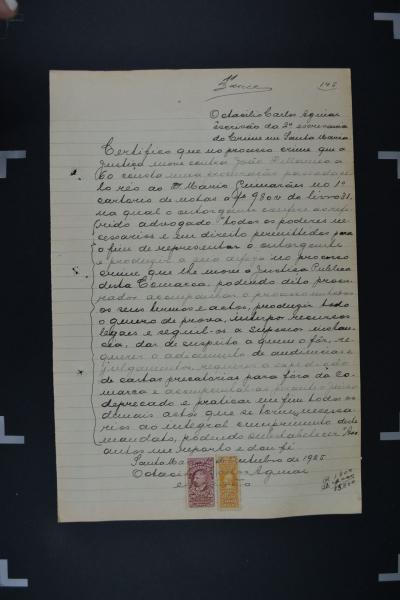 142
Octacilio Carlos Aguiar
escrivão do 2º
do Crime em Santa Maria
Certifico que no processo crime que a
Justiça move contra João
consta uma procuração passada
lo réo ao Dr Mario Guimarães no 1º
cartorio de notas a fs 98 e v do livro 31,
na qual o outorgante confere ao refe-
rido advogado "todos os poderes ne-
cessarios e em direito permittidos para
o fim de representar o outorgante
e produzir a sua defeza no processo
crime que lhe move a Justiça Publica
desta Comarca, podendo dito procu-
rador acompanhar o processo em todos
os seus termos e actos, produzir todo
o genero de prova, interpor recursos
legaes e seguil-os a superior instan-
cia, dar de suspeito a quem o fôr, re-
querer o adiamento de audiencias e
julgamentos, requerer a expedição
de cartas precatorias para fóra da Co-
marca e acompanhar as perante o Juizo
deprecado e praticar em fim todos os
demais actos que se tornem necessa-
rios ao integral cumprimento deste
mandato, podendo substabelecer". Aos
autos me reporto e dou fé
Santa Ma de 1925
Octac Aguiar